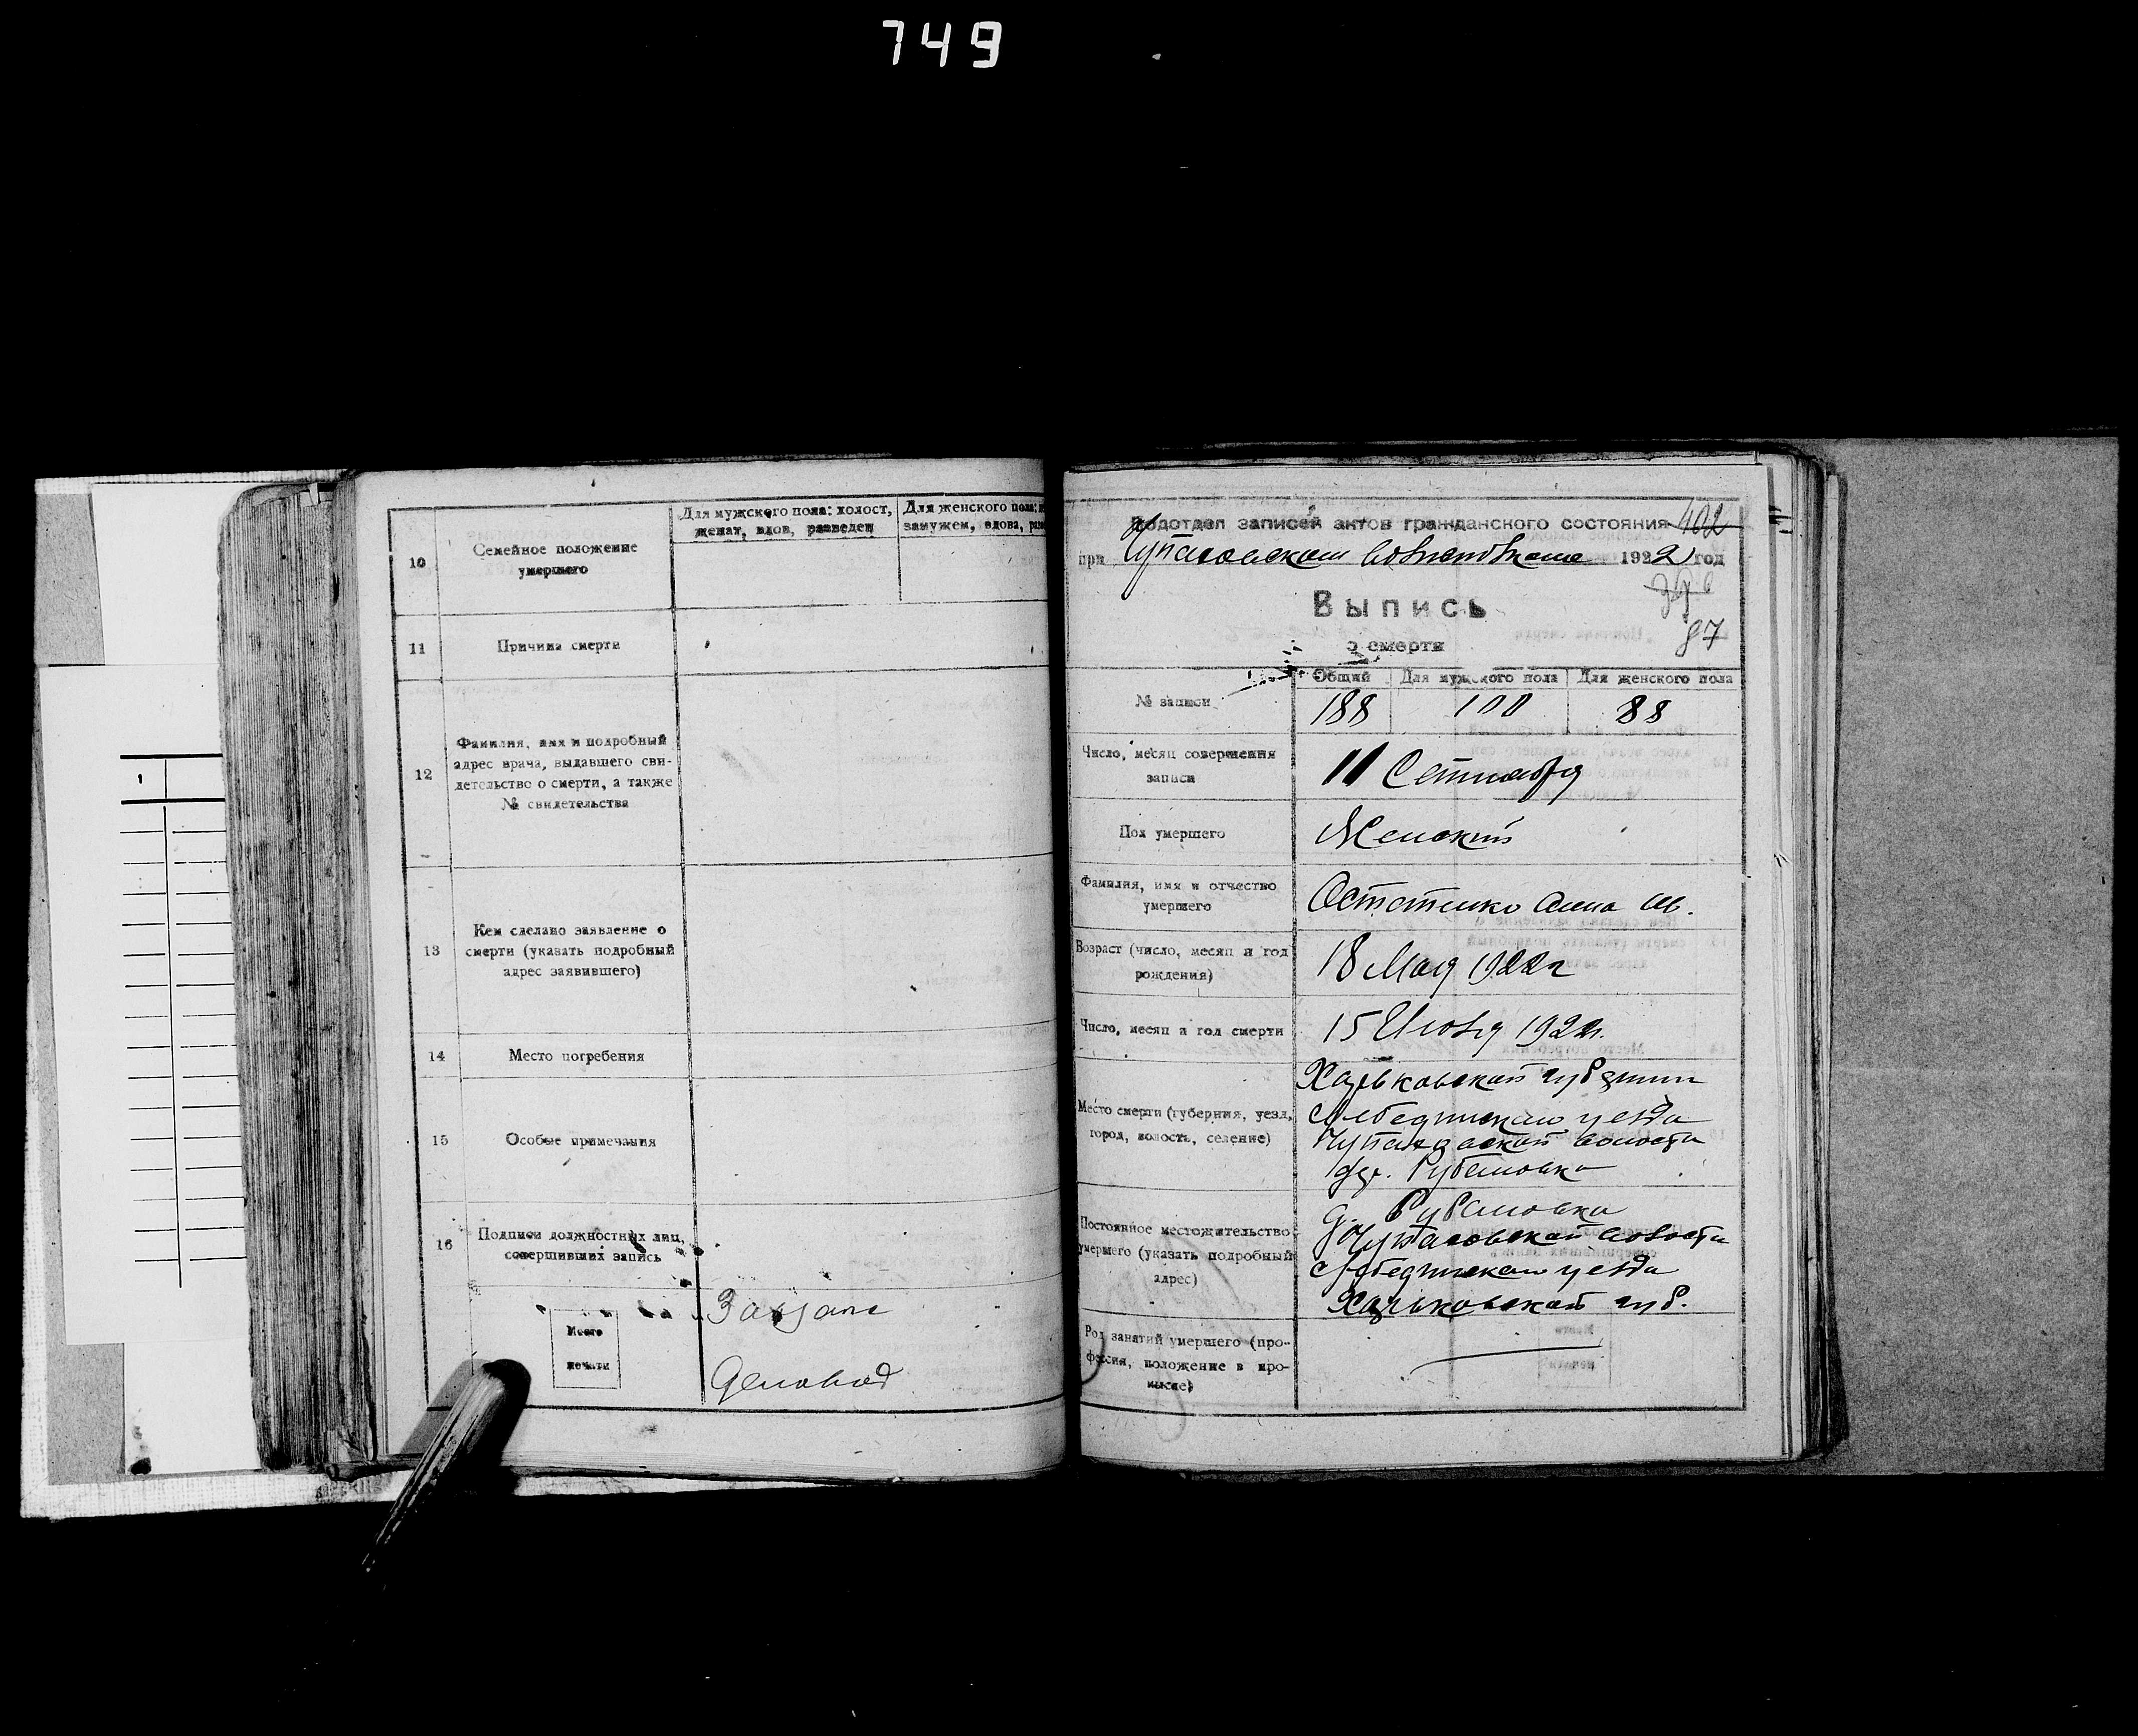 749
10
Семейное положение
умершего
Для мужского пола: холост,
женат, вдов, разведен
Для женского пола:
замужем, вдова,
11
Причина смерти
12
Фамилия, имя и подробный
адрес врача, выдавшего сви-
детельство о смерти, а также
№ свидетельства
13
Кем сделано заявление о
смерти (указать подробный
адрес заявившего)
14
Место погребения
15
Особые примечания
16
Подписи должностных лиц,
совершивших запись
Место
печати
Завзагс
Деловод
Подотдел записей актов гражданского состояния 402
при 1922 год
Выпись
87
о смерти
№ записи
Общий
Для мужского пола
Для женского пола
188
100
88
Число, месяц совершения
записи
11 Сентября
Пол умершего
Женский
Фамилия, имя и отчество
умершего
Анна Ив.
Возраст (число, месяц и год
рождения)
18 Мая 1922 г
Число, месяц и год смерти
15 1922 г.
Место смерти (губерния, уезд,
город, волость, селение)
Харьковской губернии
Лебединского уезда
волости
дер. Рубановка
Постоянное местожительство
умершего (указать подробный
адрес)
д. Рубановка
Чупаховской волости
Лебединского уезда
Харьковской губ.
Род занятий умершего (про-
фессия, положение в про-
мысле)